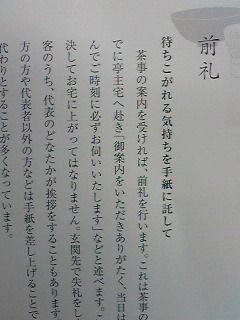 前礼
待ちこがれる気持ちを手紙に託して
茶事の案内を受ければ、前礼を行います。これは茶事の
でに亭主宅へ赴き「御案内をいただきありがたく、当日は
んでご時刻に必ずお伺いいたします」などと述べます。こ
決してお宅に上がってはなりません。玄関先で失礼をし
客のうち、代表のどなたかが挨拶をすることもあります
方の方や代表者以外の方などは手紙を差し上げることで
代わりとすることが多くなっています。